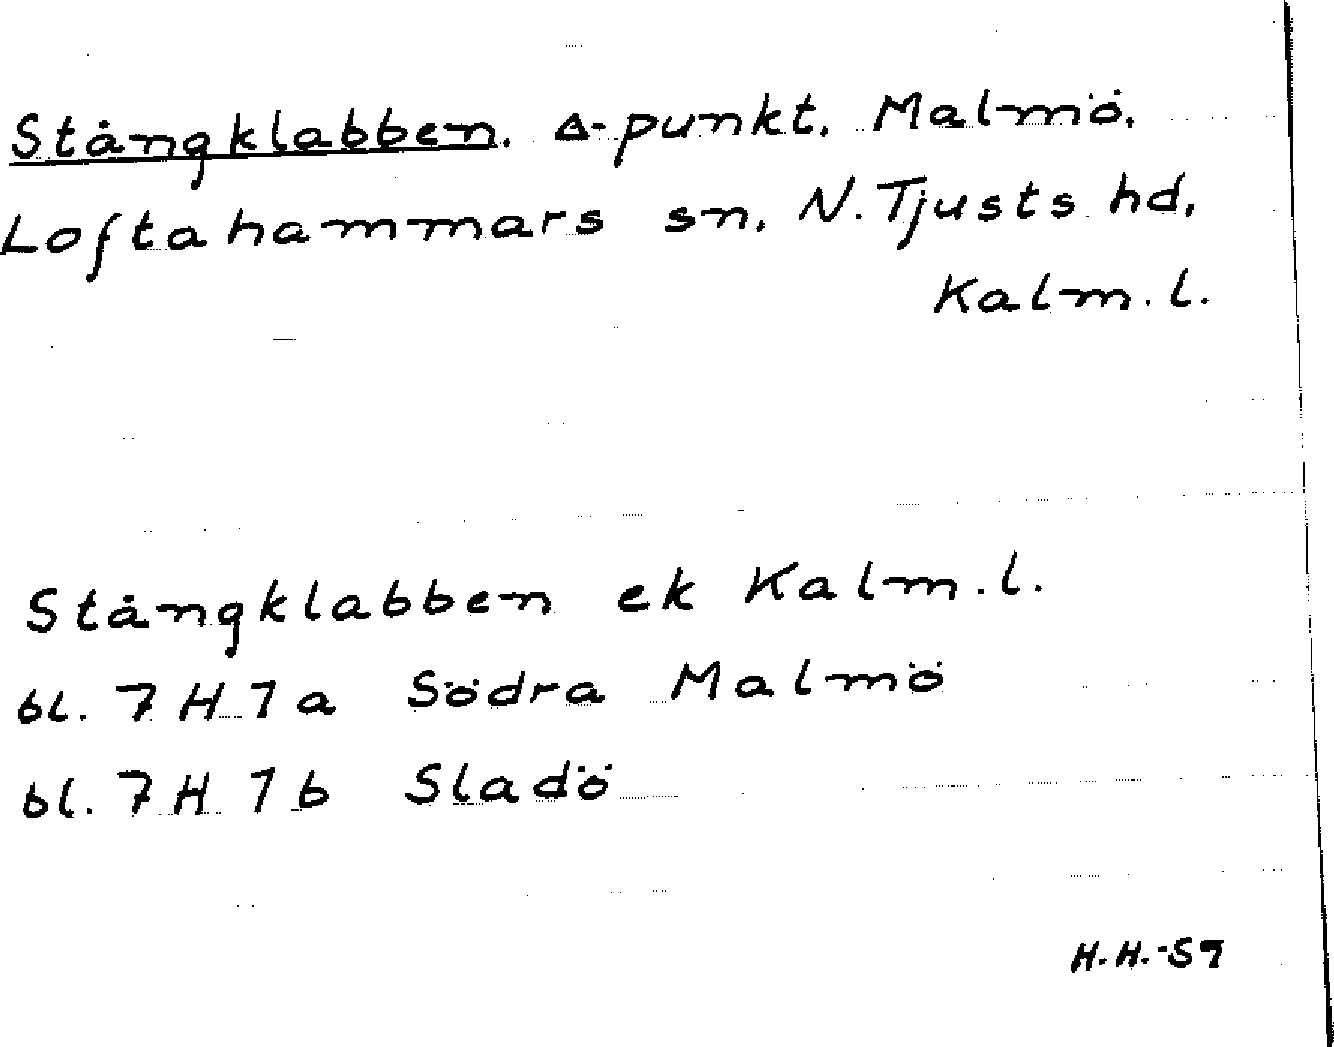 Stångklabben. Δ-punkt. Malmö.
Loftahammars sn. N. Tjusts hd.
Kalm. l.
Stångklabben ek Kalm. l.
bl. 7 H 7 a Södra Malmö
bl. 7 H 7 b Sladö
H. H. -57